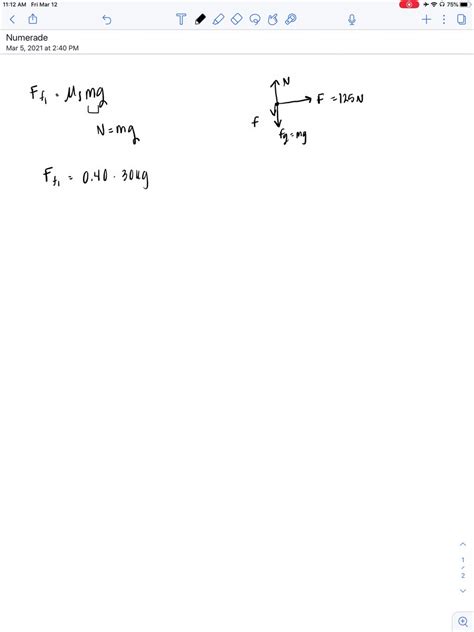 11:12 AM Fri Mar 12
75%
Numerade
Mar 5, 2021 at 2:40 PM
F_f1 = μ_s mg
N = mg
F_f1 = 0.40 · 30kg
N
F = 125N
f
fg = mg
1
/
2